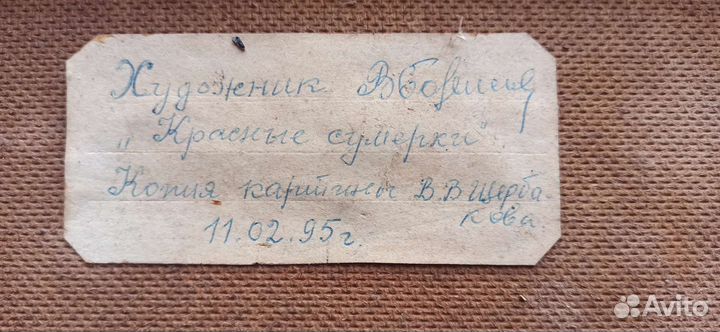 Художник
„Красные сумерки"
Копия картины В.В Щерба-
кова.
11.02.95г.
Avito